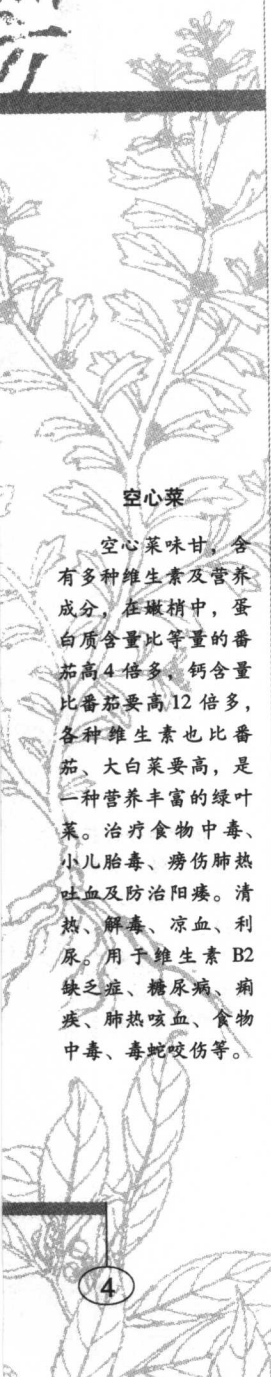 空心菜
空心菜味甘，含
有多种维生素及营养
成分，在嫩梢中，蛋
白质含量比等量的番
茄高4倍多，钙含量
比番茄要高12倍多，
各种维生素也比番
茄、大白菜要高，是
一种营养丰富的绿叶
菜。治疗食物中毒、
小儿胎毒、痨伤肺热
吐血及防治阳痿。清
热、解毒、凉血、利
尿。用于维生素 B2
缺乏症、糖尿病、痢
疾、肺热咳血、食物
中毒、毒蛇咬伤等。
4